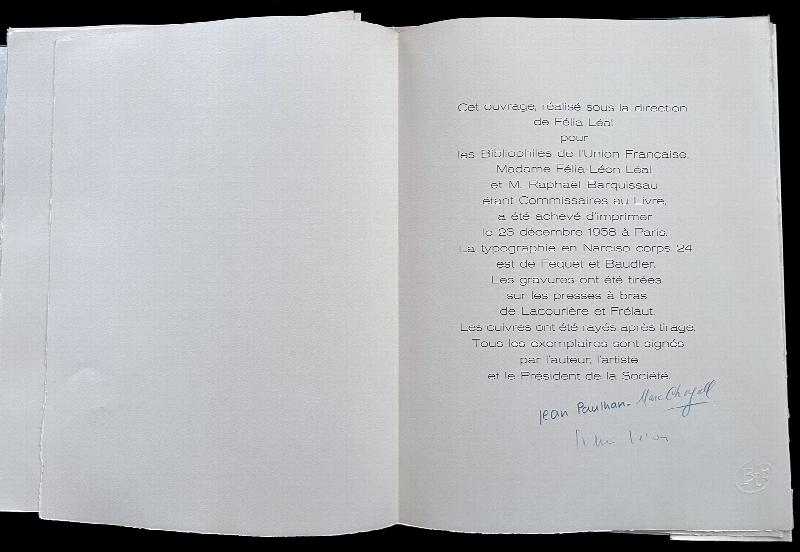 Cet ouvrage, réalisé sous la direction
de Félia Léal
pour
les Bibliophiles de l'Union Française,
Madame Félia-Léon Léal
et M. Raphaël Barquissau
étant Commissaires au Livre,
a été achevé d'imprimer
le 23 décembre 1958 à Paris.
La typographie en Narciso corps 24
est de Fequet et Baudier.
Les gravures ont été tirées
sur les presses à bras
de Lacourière et Frélaut.
Les cuivres ont été rayés après tirage.
Tous les exemplaires sont signés
par l'auteur, l'artiste
et le Président de la Société.
Jean Paulhan - Marc Chagall